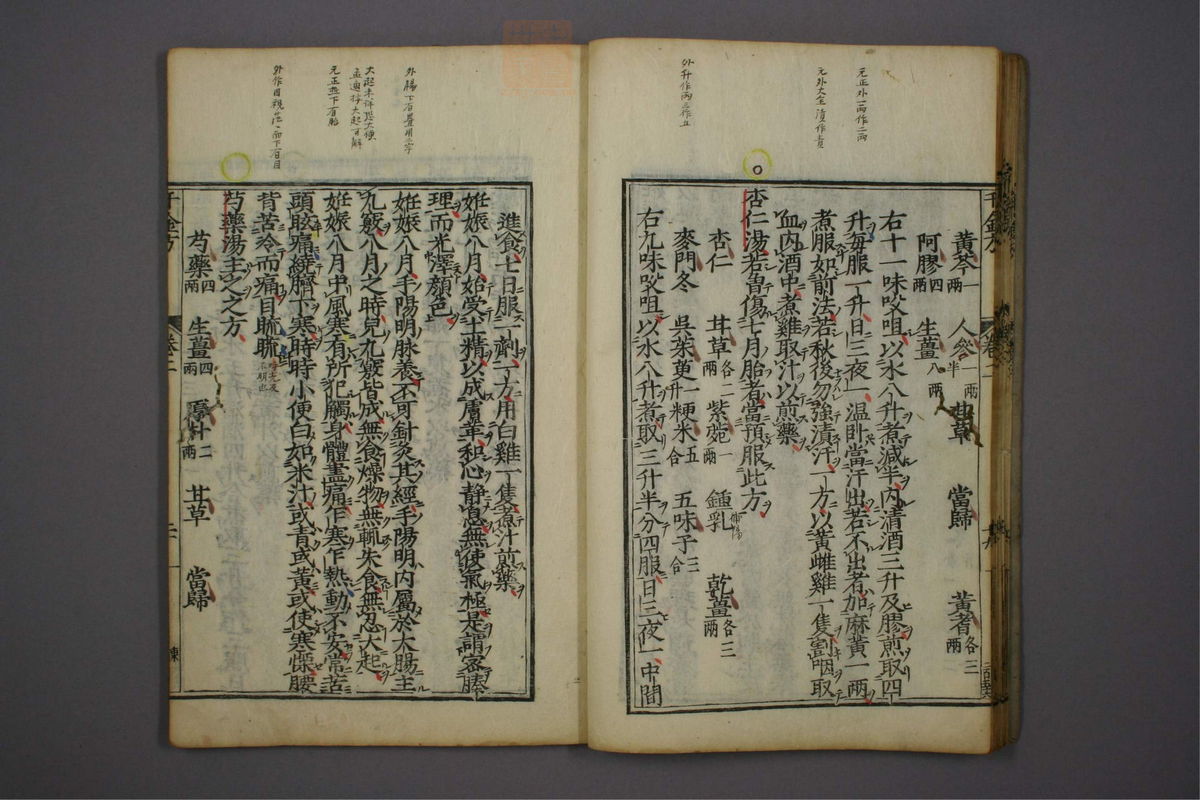 黃芩一兩 人參一兩半 甘草 當歸 黃耆各三兩
阿膠四兩 生薑八兩
右十一味㕮咀以水八升煮減半內清酒三升及膠煎取四
升每服一升日三夜一溫臥當汗出若不出者加麻黃一兩
煮服如前法若秋後勿強漬汗一方以黃雌雞一隻割咽取
血內酒中煮雞取汁以煎藥
杏仁湯若曽傷七月胎者當預服此方
杏仁 甘草各二兩 紫菀一兩 鍾乳 乾薑各三兩
麥門冬 吳茱萸一升 粳米五合 五味子三合
右九味㕮咀以水八升煮取三升半分四服日三夜一中間
進食七日服一劑一方用白雞一隻煮汁煎藥
妊娠八月始受土精以成膚革和心靜息無使氣極是謂密腠
理而光澤顏色
妊娠八月手陽明脉養不可針灸其經手陽明內屬於大腸主
九竅八月之時兒九竅皆成無食燥物無輒失食無忍大起
妊娠八月中風寒有所犯觸身體盡痛乍寒乍熱動不安常苦
頭眩痛繞臍下寒時時小便白如米汁或青或黃或使寒慄腰
背苦冷而痛目䀮䀮
芍藥湯主之之方
芍藥四兩 生薑四兩 厚朴二兩 甘草 當歸
千金方 卷二
元正外一兩作二兩
元外大全漬作責
外升作兩三作五
元正並下有胎